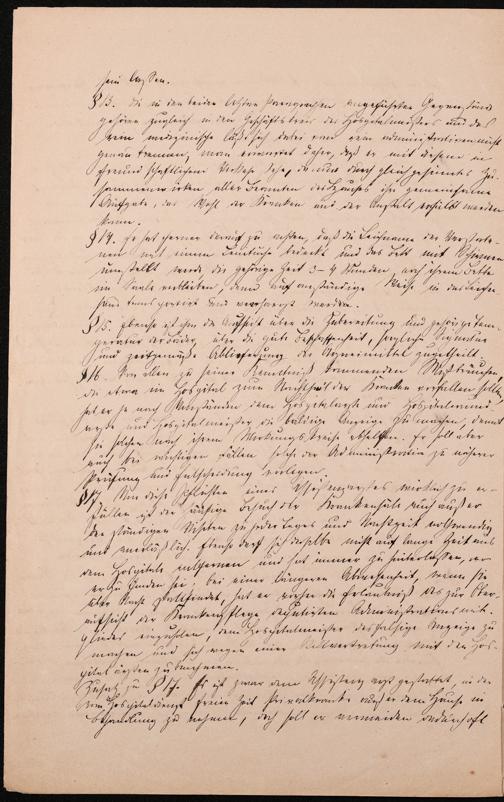 sein lassen.
§13. Die in den beiden letzten Paragraphen angeführten Gegenstände
gehören zugleich in den Geschäftskreis des Hospitalmeisters und das
rein medizinische läßt sich dabei von dem administrativen nicht
genau trennen, man erwartet daher, daß er mit diesem in
freundschaftlichem stehe, da nur durch gleichgesinntes Zu-
sammenwirken aller Beamten des Hauses die gemeinsame
Aufgabe, das Wohl der Kranken und der Anstalt erfüllt werden
kann.
§14. Er hat ferner darauf zu achten, daß die Leichname der Verstorbe-
nen mit einem Leintuche bedeckt und das Bett mit Schirmen
umstellt werde, die gehörige Zeit 3-4 Stunden, auf ihrem Bette
im Saale verbleiben, dann auf anständige Weise in das Leichen-
haus transportirt und verwahrt werden.
§15. Ebenso ist ihm die Aufsicht über die Zubereitung und gehörige Tem-
peratur der Bäder, über die gute Beschaffenheit, sorgliche Signatur
und zeitgemäße Ablieferung der Arzneimittel zugetheilt.
§16. Von allen zu seiner Kenntniß kommenden Mißbräuchen,
die etwa im Hospital zum Nachtheil der Kranken vorfallen sollen,
hat er je nach Umständen dem Hospitalarzte und
und Hospitalmeister die baldige Anzeige zu machen, damit
sie solchen nach ihrem Wirkungskreise abhelfen. Er soll aber
auch bei wichtigen Fällen solche der Administration zu näherer
Prüfung und Entscheidung vorlegen.
§17. Um diese Pflichten eines Assistenzarztes wirklich zu er-
füllen ist der häufige Besuch der Krankensäle auch außer
den ständigen Visiten zu jeder Tages und Nachtzeit nothwendig
und unerläßlich. Ebenso darf sich derselbe nicht auf lange Zeit aus
dem Hospitale entfernen und hat immer zu hinterlassen, wo
er zu finden sei; bei einer längeren Abwesenheit, wenn sie
über Nacht stattfindet, hat er vorher die Erlaubniß des zur Ober-
aufsicht der Krankenpflege deputirten Administrationsmit-
gliedes einzuholen, dem Hospitalmeister desfalsige Anzeige zu
machen und sich wegen einer Stellvertretung mit den Hos-
pitalärzten zu benehmen.
Zusatz zu §17. Es ist zwar dem Assistenzarzt gestattet, in der
vom Hospitaldienst freien Zeit Privatkranke außer dem Hause in
Behandlung zu nehmen, doch soll er vermeiden dadurch oft